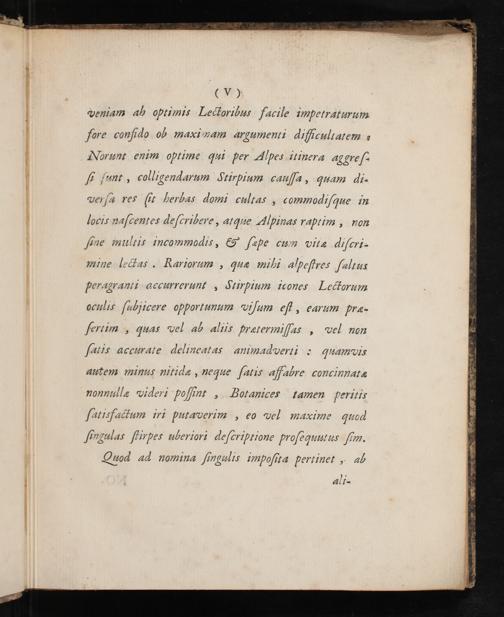 ( V )
veniam ab optimis Lectoribus facile impetraturum
fore confido ob maximam argumenti difficultatem.
Norunt enim optime qui per Alpes itinera aggreſ-
ſi ſunt, colligendarum Stirpium cauſſa, quam di-
verſa res ſit herbas domi cultas, commodiſque in
locis naſcentes deſcribere, atque Alpinas raptim, non
ſine multis incommodis, & ſæpe cum vitæ diſcri-
mine lectas. Rariorum, quæ mihi alpeſtres ſaltus
peragranti accurrerunt, Stirpium icones Lectorum
oculis ſubjicere opportunum viſum eſt, earum præ-
ſertim, quas vel ab aliis prætermiſſas, vel non
ſatis accurate delineatas animadverti: quamvis
autem minus nitidæ, neque ſatis affabre concinnatæ
nonnullæ videri poſſint, Botanices tamen peritis
ſatisfactum iri putaverim, eo vel maxime quod
ſingulas ſtirpes uberiori deſcriptione proſequutus ſim.
Quod ad nomina ſingulis impoſita pertinet, ab
ali-